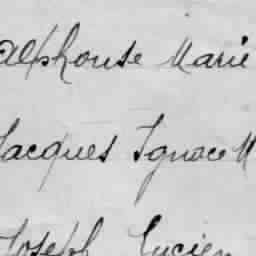 Alphonse Marie
Jacques Ignace M
Joseph Lucien